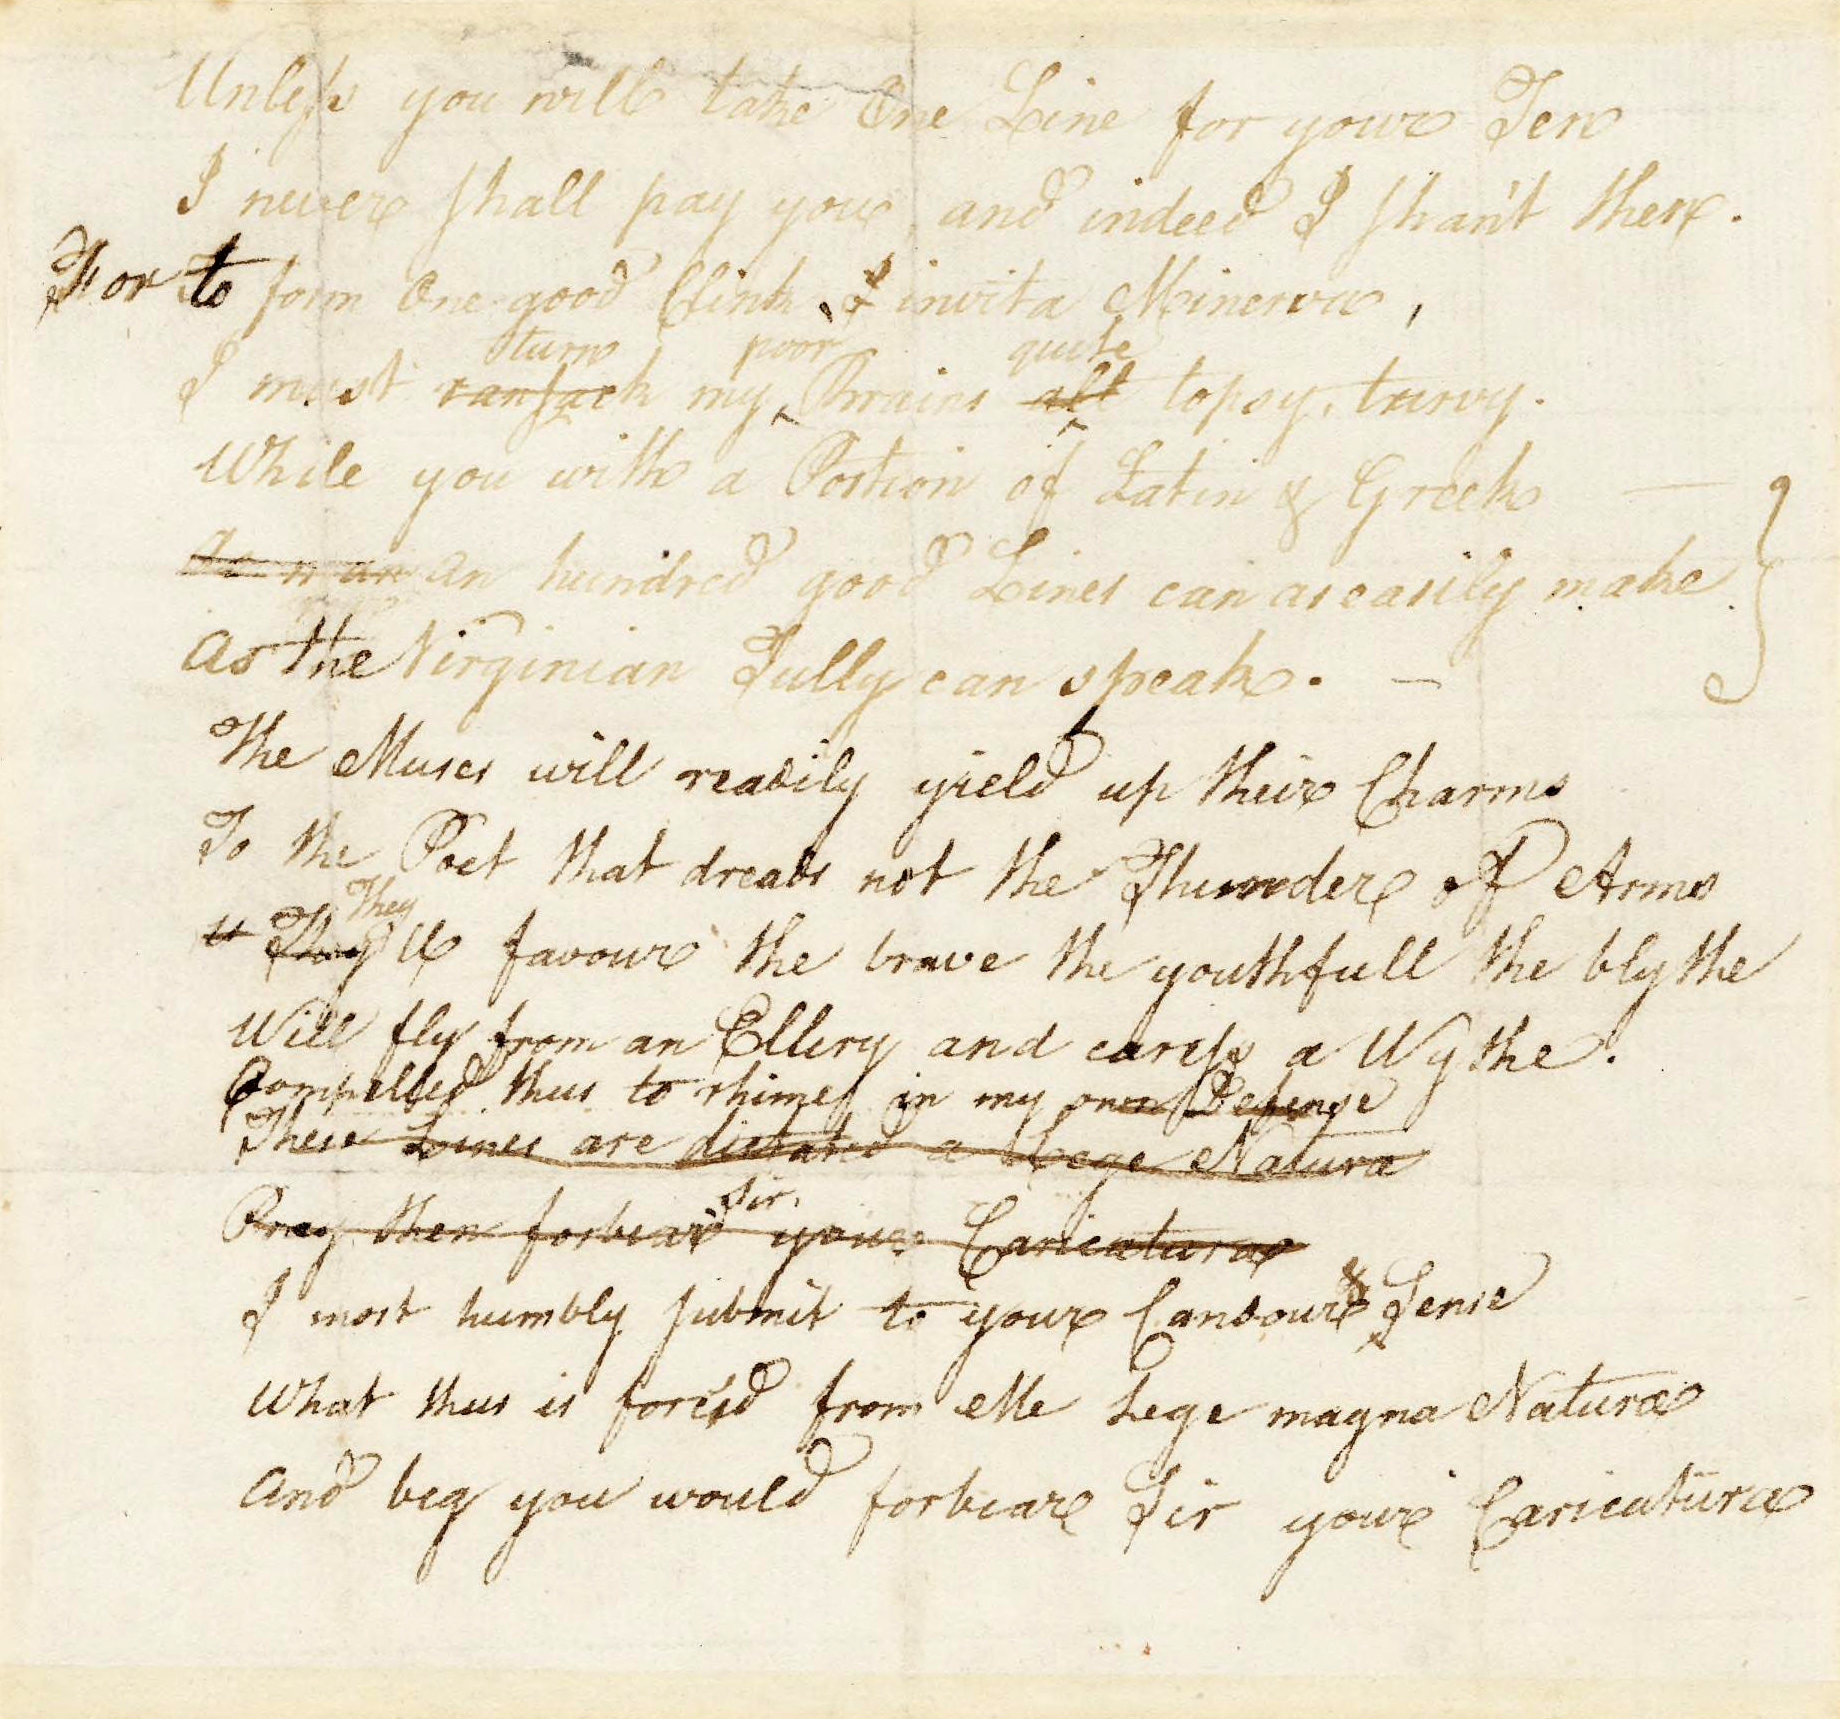 Unless you will take One Line for your Ten
I never shall pay you, and indeed I shan't then.
For to form One good Clink, I invita Minerva,
turn poor quite
I must ransack my Brains all topsy, turvy.
While you with a Portion of Latin & Greek —
As man an hundred good Lines can as easily make
As the Virginian Tully can speak. —
The Muses will readily yield up their Charms
To the Poet that dreads not the Thunder of Arms
They
They'll favour the brave the youthfull the blythe
Will fly from an Ellery and caress a Wythe.
Compelled thus to rhime in my own Defense
These Lines are dictated a Lege Natura
Sir,
Pray then forbear your Caricatura
I most humbly submit to your Candour & Sense
What thus is forc'd from Me Lege magna Natura
And beg you would forbear Sir your Caricatura